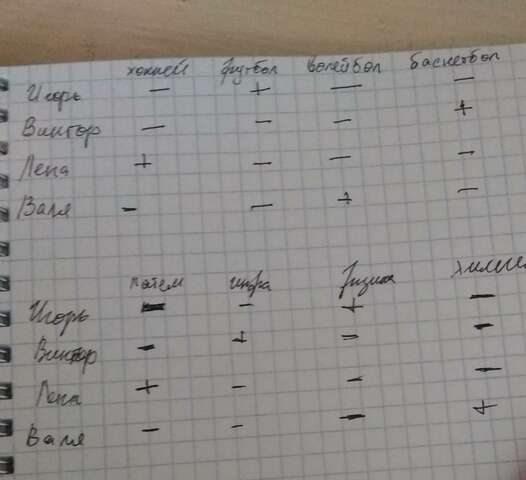 хоккей футбол волейбол баскетбол
Игорь — + — —
Виктор — — — +
Лена + — — —
Валя — — + —
матем инфа физика химия
Игорь — - + —
Виктор — + = —
Лена + - - —
Валя — - — +